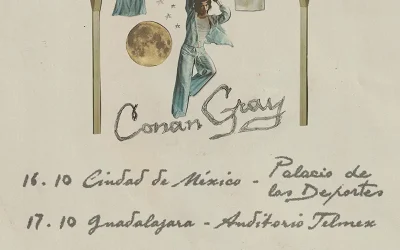 Conan Gray
16.10 Ciudad de México - Palacio de
los Deportes
17.10 Guadalajara - Auditorio Telmex